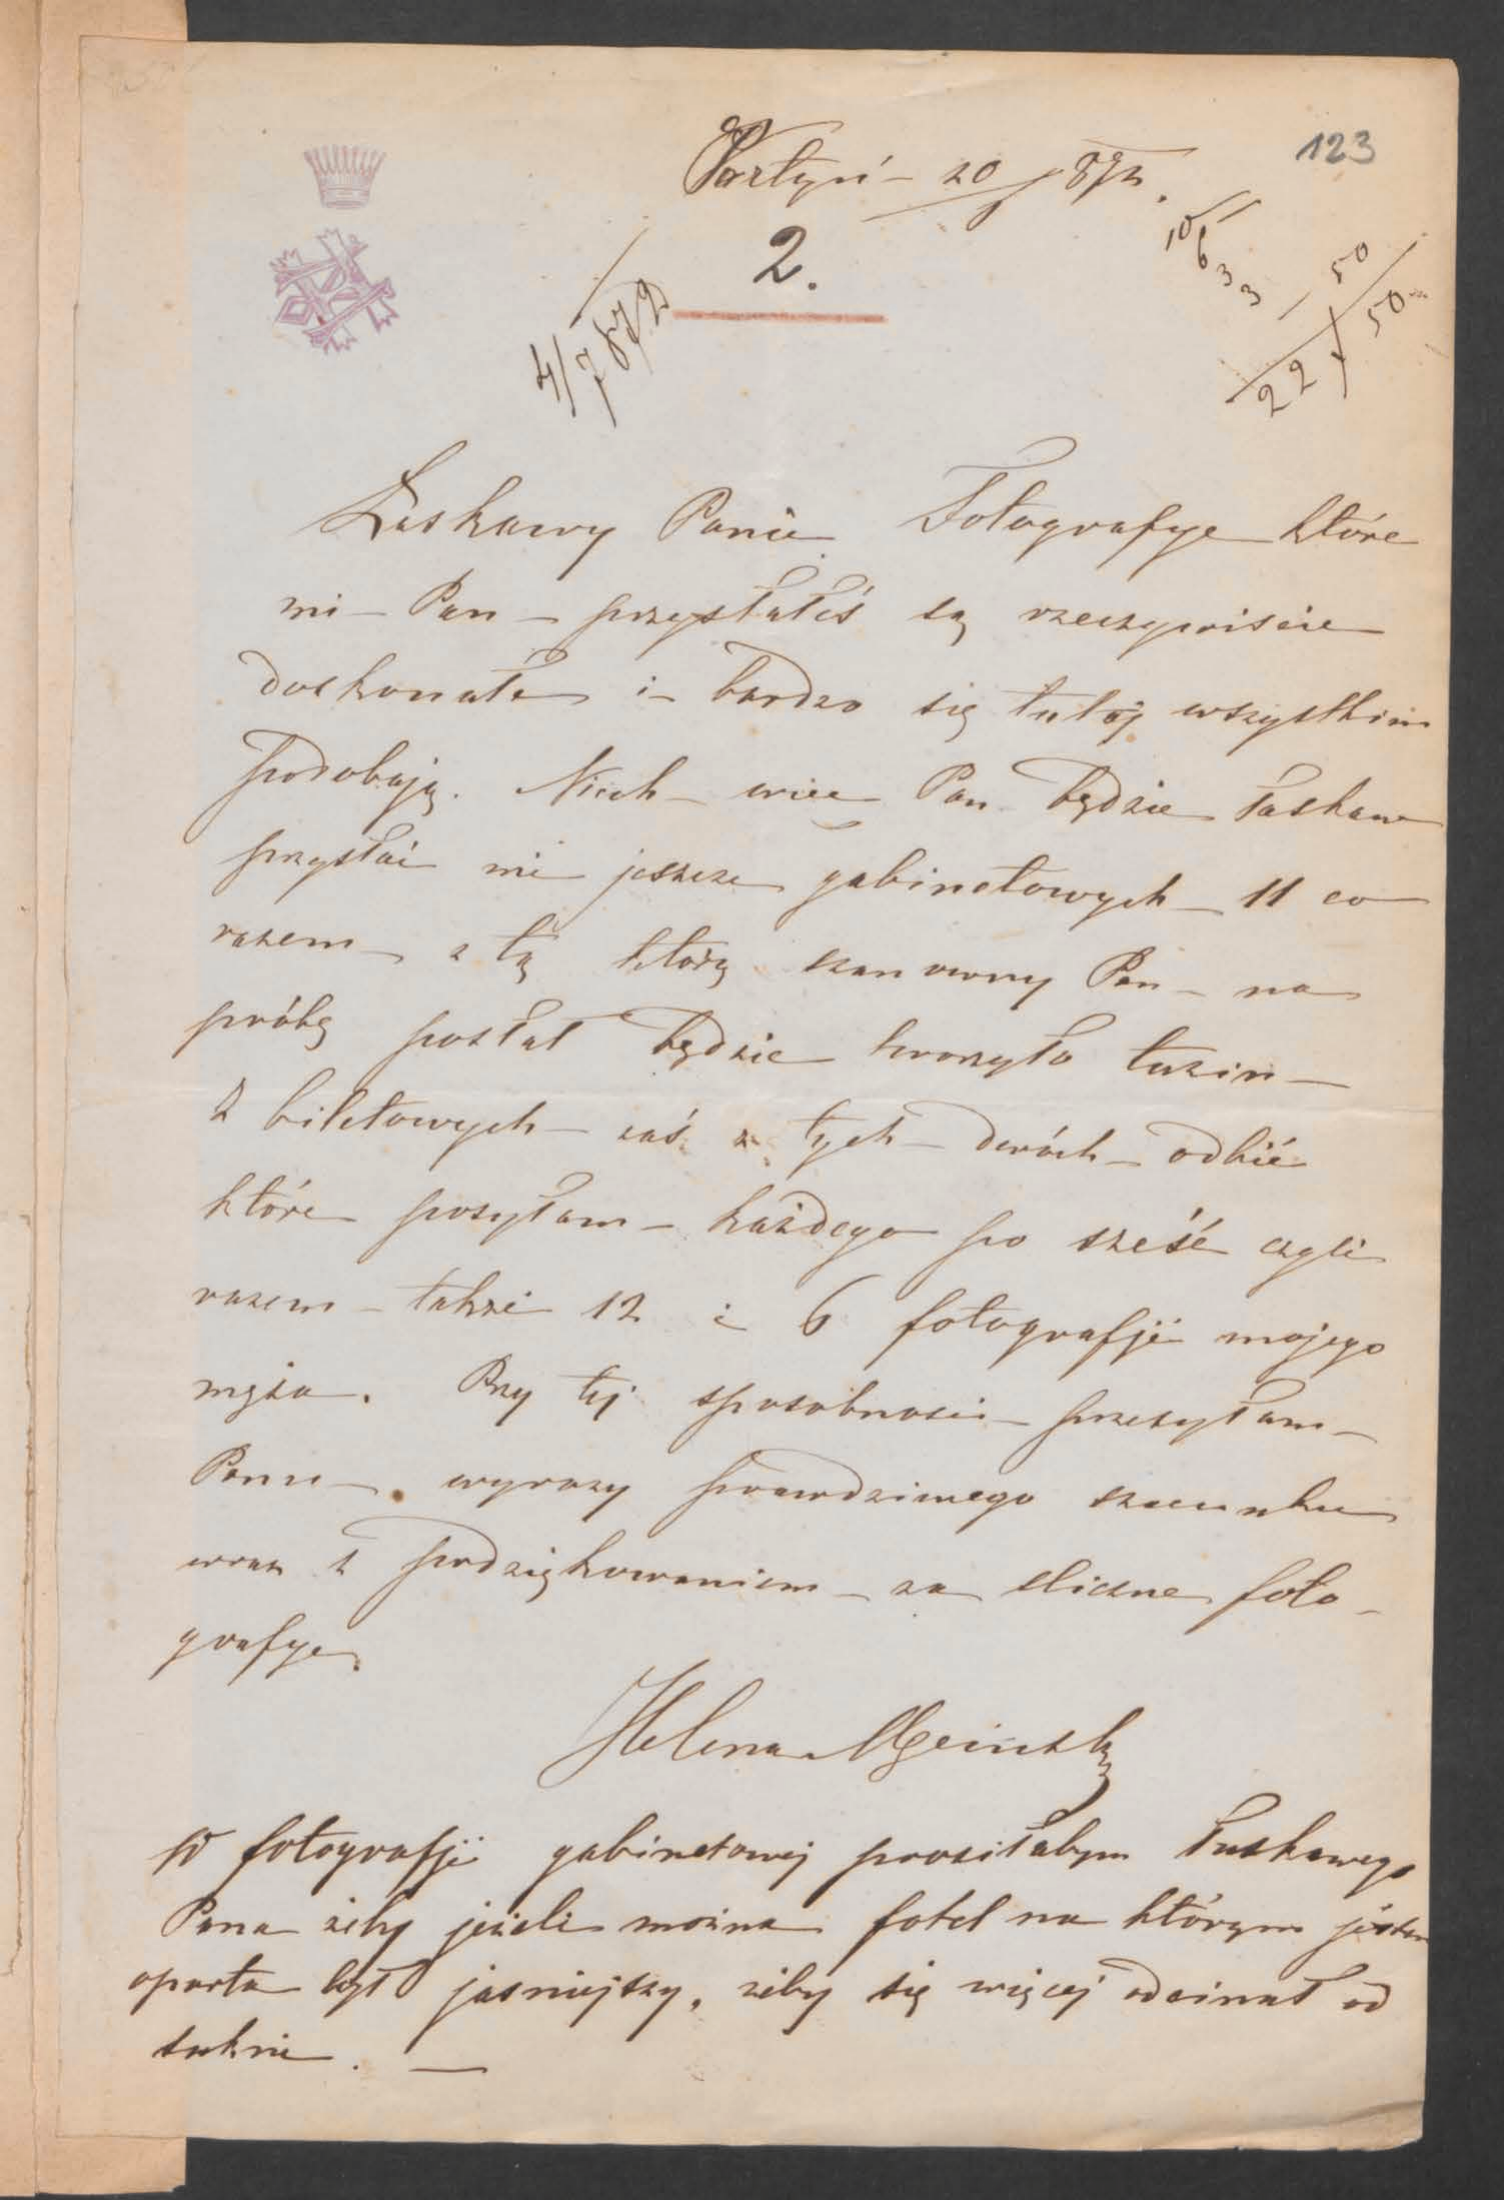 123
Partyń 20/ 872.
2.
4/7 872
10
6
3
3 — 50
22 50
Łaskawy Panie Fotografye które
mi — Pan — przysłałeś są rzeczywiście
doskonałe i — bardzo się tutaj wszystkim
podobają. Niech — więc Pan będzie łaskaw
przysłać mi jeszcze gabinetowych — 11 co
razem z tą którą szanowny Pan — na
próbę posłał będzie tworzyło tuzin —
z biletowych — zaś z tych — dwóch — odbić
które posyłam — każdego po sześć czyli
razem — także 12 i 6 fotografji mojego
męża. Przy tej sposobności — przesyłam —
Panu — wyrazy prawdziwego szacunku
wraz z podziękowaniem — za śliczne foto-
grafye.
Helena
W fotografji gabinetowej prosiłabym łaskawego
Pana żeby jeżeli można fotel na którym jestem
oparta był jaśniejszy, żeby się więcej odcinał od
sukni. —